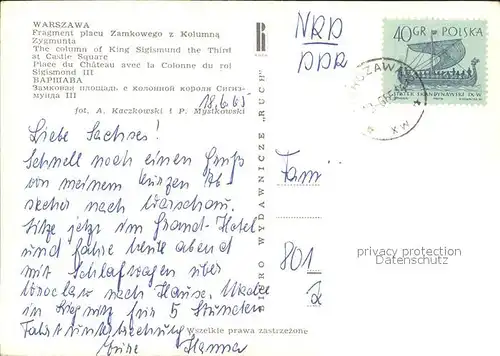 WARSZAWA
Fragment placu Zamkowego z Kolumną
Zygmunta
The column of King Sigismund the Third
at Castle Square
Place du Château avec la Colonne du roi
Sigismond III
ВАРШАВА
Замковая площадь с колонной короля Сигиз-
мунда III
fot. A. Kaczkowski i P. Mystkowski
18.6.65
Liebe Sachses!
Schnell noch einen Gruß
von meinem kurzen Ab-
stecher nach Warschau.
Sitze jetzt im Grand-Hotel
und fahre heute abend
mit Schlafwagen über
Wroclaw nach Hause.
in für 5 Stunden
Fahrtunterbrechung
Eure Hanna
BIURO WYDAWNICZE „RUCH"
Wszelkie prawa zastrzeżone
NRD
DDR
40 GR POLSKA
Fam
801
privacy protection
Datenschutz